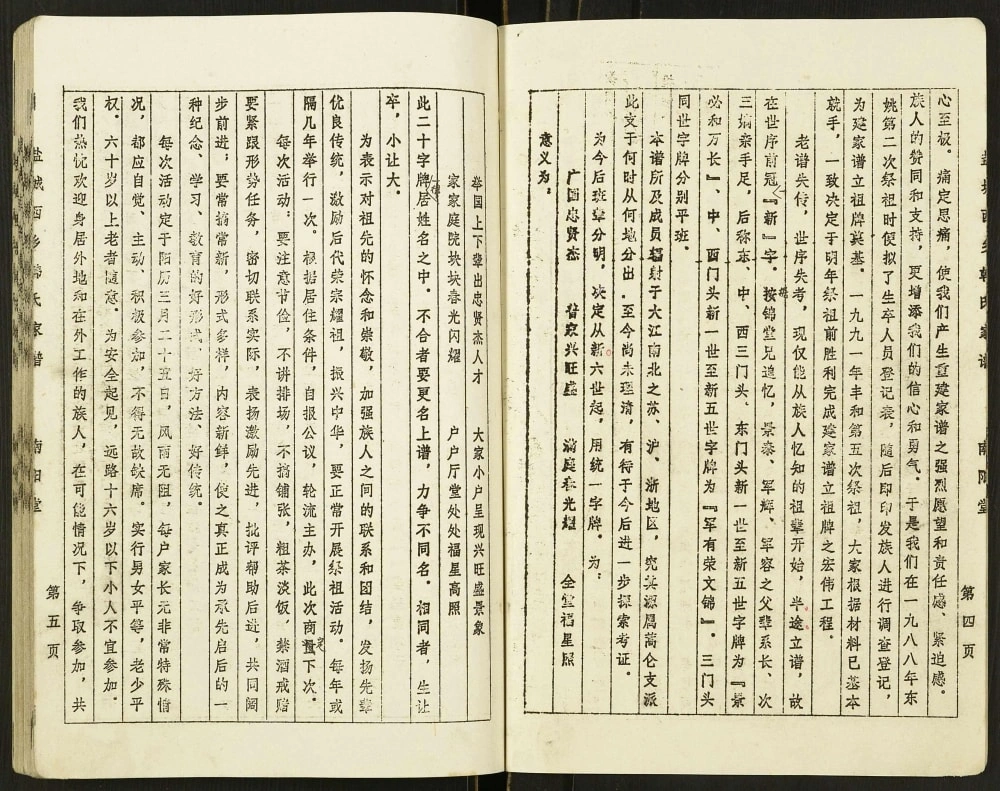 盐城西乡韩氏家谱 南阳堂
第四页
心至极。痛定思痛，使我们产生重建家谱之强烈愿望和责任感、紧迫感。
族人的赞同和支持，更增添我们的信心和勇气。于是我们在一九八八年东
姚第二次祭祖时便拟了生卒人员登记表，随后即印发族人进行调查登记，
为建家谱立祖牌奠基。一九九一年丰和第五次祭祖，大家根据材料已基本
就手，一致决定于明年祭祖前胜利完成建家谱立祖牌之宏伟工程。
老谱失传，世序失考，现仅能从族人忆知的祖辈开始，半途立谱，故
在世序前冠『新』字。按锦堂兄追忆，景泰、军辉、军容之父辈系长、次
三嫡亲手足，后称东、中、西三门头、东门头新一世至新五世字牌为『景
必和万长』、中、西门头新一世至新五世字牌为『军有荣文锦』。三门头
同世字牌分别平班。
本谱所及成员辐射于大江南北之苏、沪、浙地区，究其源属蒿仑支派
此支于何时从何地分出．至今尚未理清，有待于今后进一步探索考证。
为今后班辈分明，决定从新六世起，用统一字牌。为：
广国忠贤杰 普家兴旺盛 满庭春光耀 全堂福星照
意义为，
举国上下辈出忠贤杰人才 大家小户呈现兴旺盛景象
家家庭院块块春光闪耀 户户厅堂处处福星高照
此二十字牌居姓名之中．不合者要更名上谱，力争不同名．相同者，生让
卒，小让大。
为表示对祖先的怀念和崇敬，加强族人之间的联系和团结，发扬先辈
优良传统，激励后代荣宗耀祖，振兴中华，要正常开展祭祖活动。每年或
隔几年举行一次。根据居住条件，自报公议，轮流主办，此次南置下次。
每次活动，要注意节俭，不讲排场，不搞铺张，粗茶淡饭，禁酒戒赌
要紧跟形势任务，密切联系实际，表扬激励先进，批评帮助后进，共同阔
步前进，要常搞常新，形式多样，内容新鲜，使之真正成为承先启后的一
种纪念、学习、教育的好形式、好方法、好传统。
每次活动定于阳历三月二十五日，风雨无阻，每户家长无非常特殊情
况，都应自觉、主动、积极参加，不得无故缺席。实行男女平等，老少平
权。六十岁以上老者随意。为安全起见，远路十六岁以下小人不宜参加。
我们热忱欢迎身居外地和在外工作的族人，在可能情况下，争取参加，共
盐城西乡韩氏家谱 南阳堂
第五页